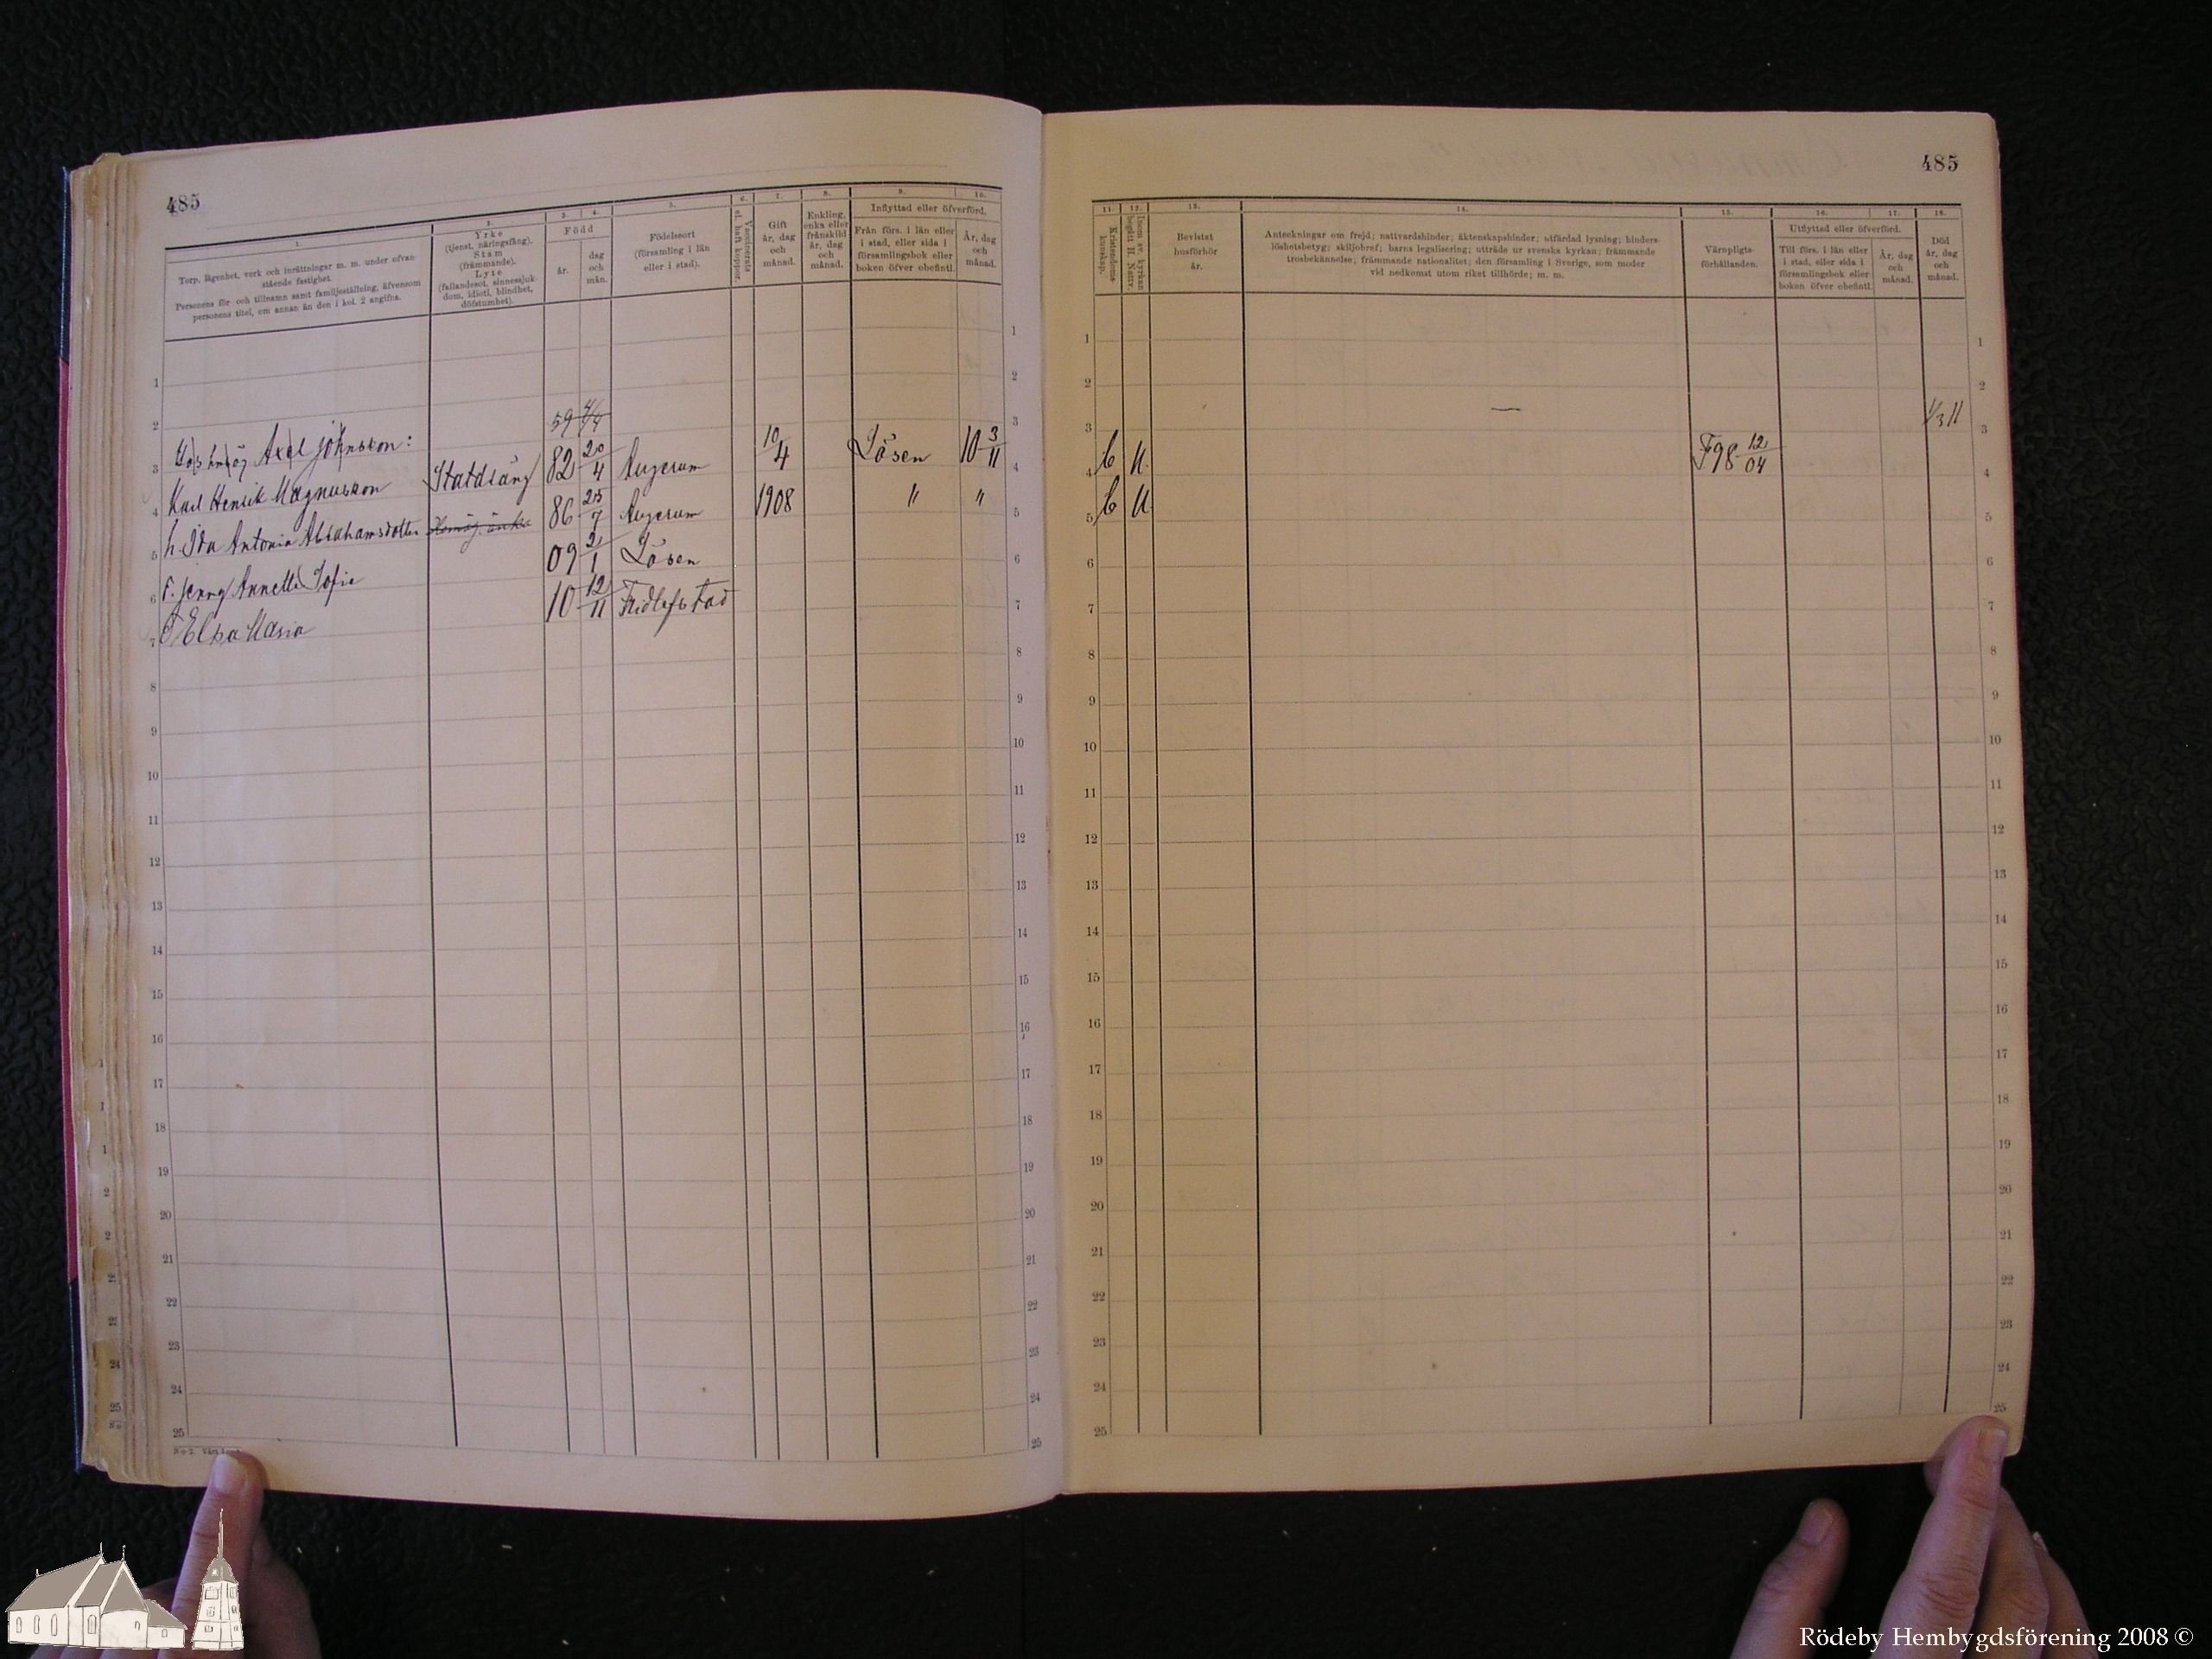 485
1.
Torp, lägenhet, verk och inrättningar m. m. under ofvanstående fastighet.
Personens för- och tillnamn samt familjeställning, äfvensom personens titel, om annan än den i kol. 2 angifna.
2.
Yrke
(tjenst, näringsfång).
Stam
(främmande).
Lyte
(fallandesot, sinnessjukdom, idioti, blindhet, döfstumhet).
3. 4.
Född
år.
dag och mån.
5.
Födelseort
(församling i län eller i stad).
6.
Vaccinerats el. haft koppor.
7.
Gift
år, dag och månad.
8.
Enkling, enka eller frånskild år, dag och månad.
9. 10.
Inflyttad eller öfverförd.
Från förs. i län eller i stad, eller sida i församlingsbok eller boken öfver obefintl.
År, dag och månad.
3 Axel Johnsson: 59 4/4
4 Karl Henrik Magnusson 82 20/4 Augerum 10/4 Lösen 10 3/11
5 h. Ida Antonia Abrahamsdotter 86 25/7 Augerum 1908 " "
6 F. Jenny Annette Sofie 09 2/1 Lösen
7 Elsa Maria 10 12/11 Fridlefstad
1
2
3
4
5
6
7
8
9
10
11
12
13
14
15
16
17
18
19
20
21
22
23
24
25
485
11.
Kristendomskunskap.
12.
Inom sv. kyrkan begått H. Nattv.
13.
Bevistat husförhör år.
14.
Anteckningar om frejd; nattvardshinder; äktenskapshinder; utfärdad lysning; hinderslöshetsbetyg; skiljobref; barns legalisering; utträde ur svenska kyrkan; främmande trosbekännelse; främmande nationalitet; den församling i Sverige, som moder vid nedkomst utom riket tillhörde; m. m.
15.
Värnpligtsförhållanden.
16. 17.
Utflyttad eller öfverförd.
Till förs. i län eller i stad, eller sida i församlingsbok eller boken öfver obefintl.
År, dag och månad.
18.
Död
år, dag och månad.
3 1/3 11
4 b u. F98 12/04
5 b u.
1
2
6
7
8
9
10
11
12
13
14
15
16
17
18
19
20
21
22
23
24
25
Rödeby Hembygdsförening 2008 ©